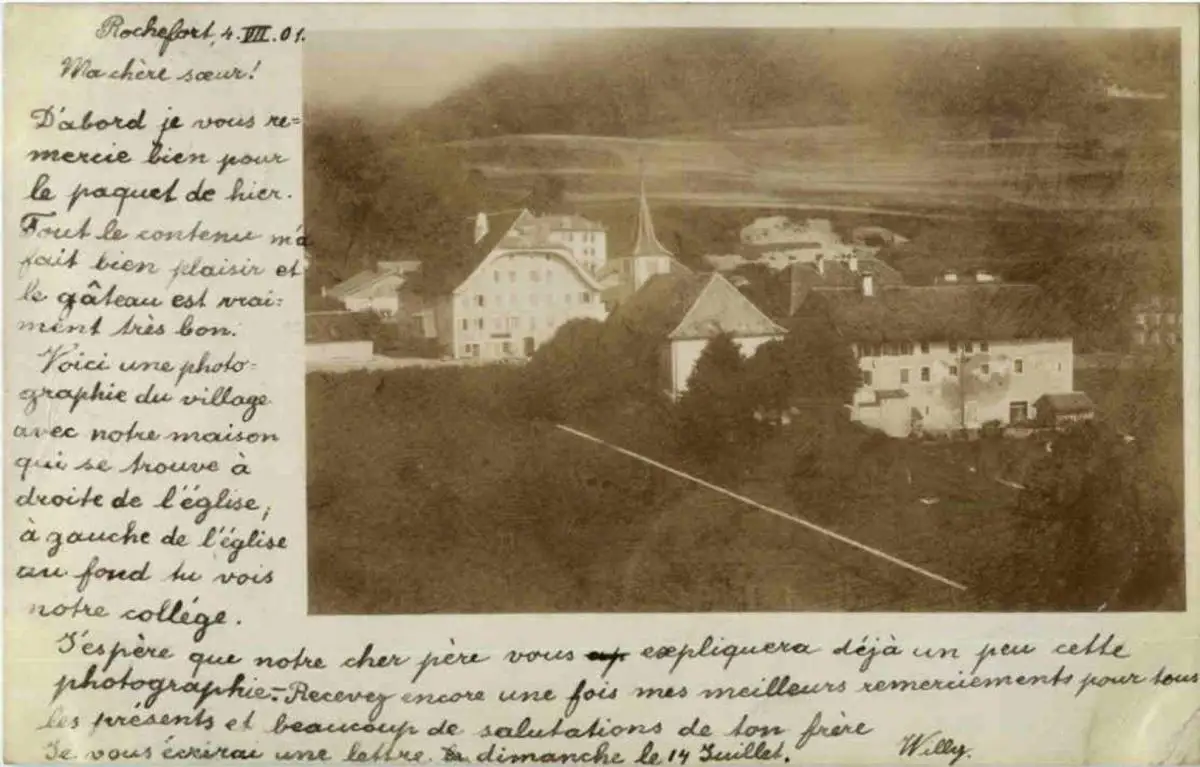 Rochefort, 4. VII. 01.
Ma chère sœur!
D'abord je vous re=
mercie bien pour
le paquet de hier.
Tout le contenu m'a
fait bien plaisir et
le gâteau est vrai=
ment très bon.
Voici une photo=
graphie du village
avec notre maison
qui se trouve à
droite de l'église,
à gauche de l'église
au fond tu vois
notre collége.
J'espère que notre cher père vous expliquera déjà un peu cette
photographie.- Recevez encore une fois mes meilleurs remerciements pour tous
les présents et beaucoup de salutations de ton frère
Je vous écrirai une lettre dimanche le 14 Juillet. Willy.